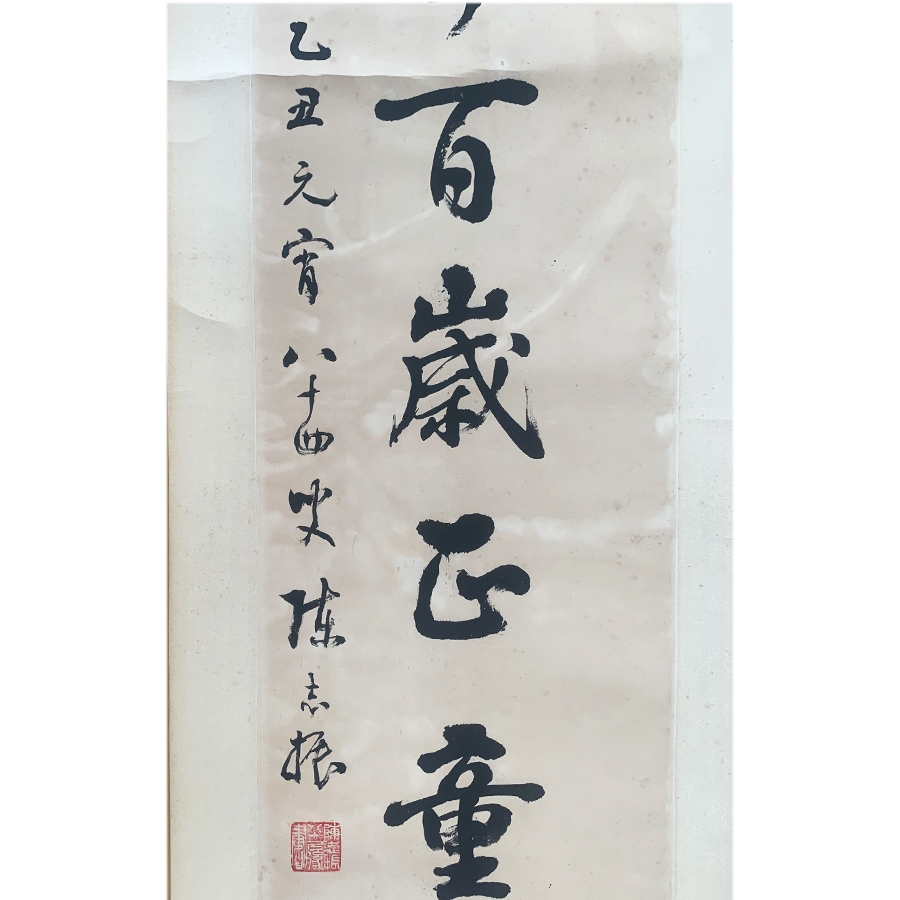 百歲正童
乙丑元宵八十四叟陳志振